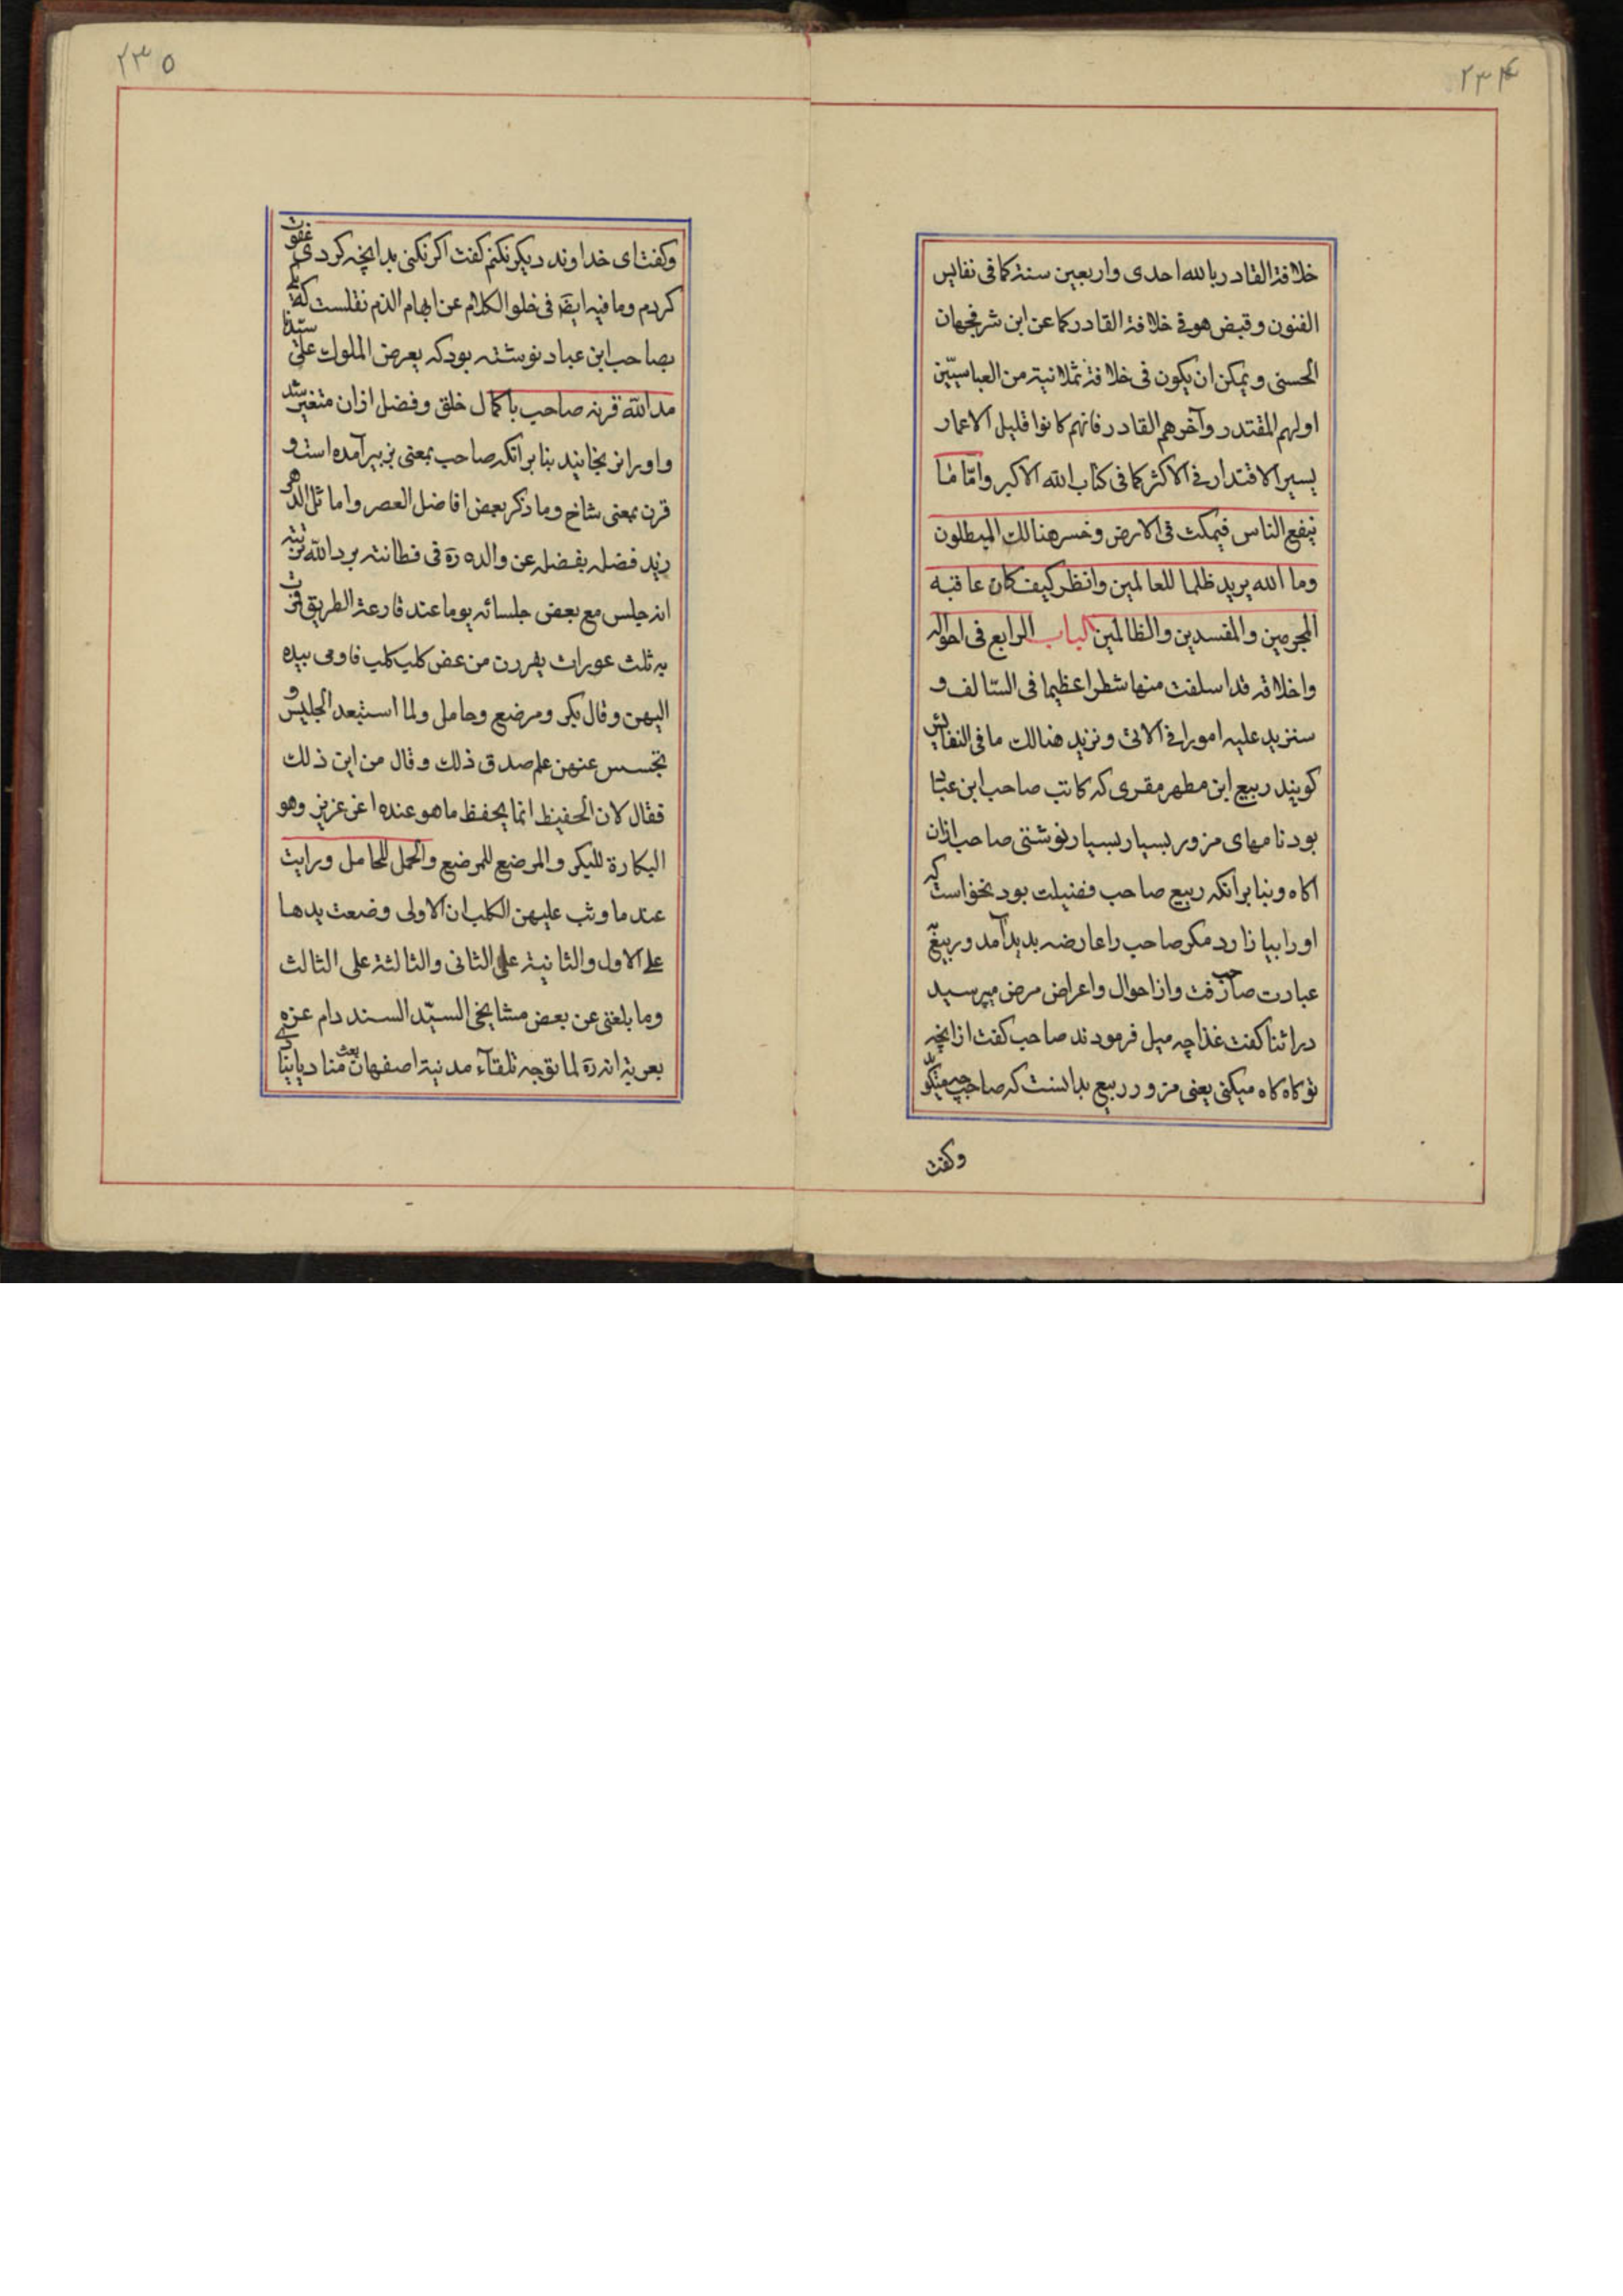 ۲۳۴
خلافة القادر بالله احدی واربعین سنة کما فی نفایس
الفنون وقبض هو فی خلافة القادر کما عن ابن شرفجهان
الحسنی ویمکن ان یکون فی خلافة ثمانیة من العباسیّین
اولهم المقتدر وآخرهم القادر فانهم کانوا قلیل الاعمار
یسیر الاقتدار فی الاکثر کما فی کتاب الله الاکبر وامّا ما
ینفع الناس فیمکث فی الارض وخسر هنالك المبطلون
وما الله یرید ظلما للعالمین وانظر کیف کان عاقبه
المجرمین والمفسدین والظالمین الباب الرابع فی احواله
واخلاقه قد اسلفت منها شطرا عظیما فی السّالف و
سنزید علیه امورا فی الاتی ونزید هنالك ما فی النفایس
کویند ربیع ابن مطهر مقری که کاتب صاحب ابن عباد
بود نامهای مزور بسیار بسیار نوشتی صاحب ازان
اکاه وبنابر انکه ربیع صاحب فضیلت بود نخواست که
اورا بیازارد مکر صاحب را عارضه بدید آمد وربیع
عبادت صاحب رفت واز احوال واعراض مرض میپرسید
در اثنا کفت غذا چه میل فرمودند صاحب کفت از انچه
تو کاه کاه میکنی یعنی مزور ربیع بدانست که صاحب چه میکو
وکفت
۲۳۵
وکفت ای خداوند دیکر نکنم کفت اکر نکنی بدانچه کردی عفوت
کردم وما فیه ایضا فی خلو الکلام عن ابهام الذم نقلست که
بصاحب ابن عباد نوشته بود که یعرض الملوك علی سیدنا
مد الله قرنه صاحب با کمال خلق وفضل ازان متغیر شد
واورا برنجانید بنابر انکه صاحب بمعنی بز بیر آمده است و
قرن بمعنی شاخ وما ذکر بعض افاضل العصر واماثل الدهر
زید فضله بفضله عن والده ره فی فطانته برد الله تربته
انه جلس مع بعض جلسائه یوما عند قارعة الطریق فمرت
به ثلث عورات یفررن من عض کلیب کلیب فاومی بیده
الیهن وقال بکر ومرضع وحامل ولما استبعد الجلیس و
تجسس عنهن علم صدق ذلك وقال من این ذلك
فقال لان الحفیظ انما یحفظ ما هو عنده اعز عزیز وهو
البکارة للبکر والمرضع للمرضع والحمل للحامل ورایت
عند ما وثب علیهن الکلب ان الاولی وضعت یدها
علی الاول والثانیة علی الثانی والثالثة علی الثالث
وما بلغنی عن بعض مشایخی السیّد السند دام عزه
بعریة انه ره لما توجه تلقآء مدنیة اصفهان بعث منادیا